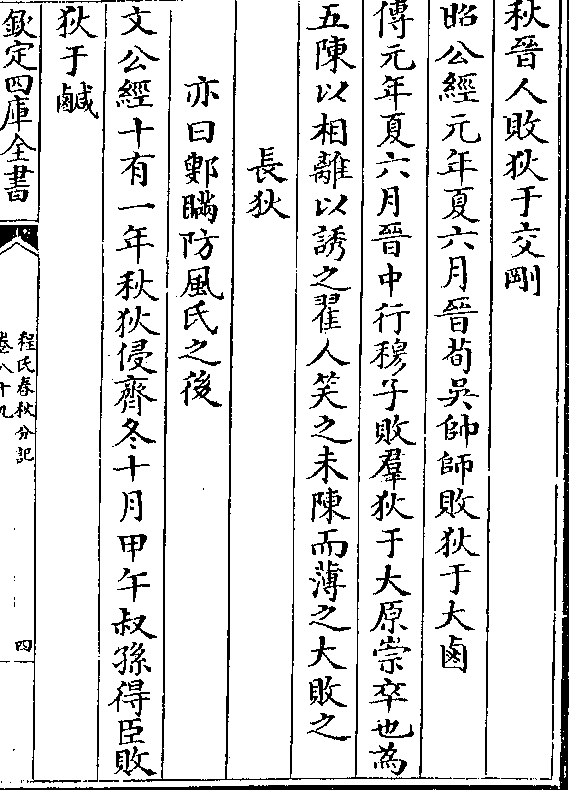 秋晉人敗狄于交剛
昭公經元年夏六月晉荀吳帥師敗狄于大鹵
傳元年夏六月晉中行穆子敗羣狄于大原崇卒也為
五陳以相離以誘之翟人笑之未陳而薄之大敗之
長狄
亦曰鄋瞞防風氏之後
文公經十有一年秋狄侵齊冬十月甲午叔孫得臣敗
狄于鹹
欽定四庫全書
程氏春秋分記
卷八十九
四